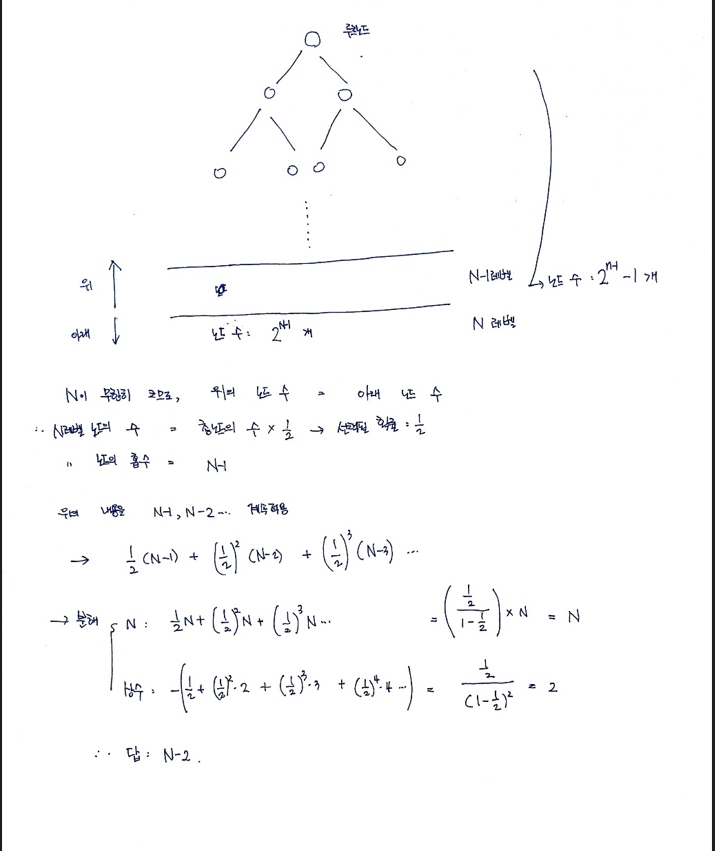 루트노드
위
N-1레벨 → 노드 수 : 2^(n-1) - 1 개
아래
노드 수 : 2^(N-1) 개
N 레벨
N이 무한히 크므로, 위의 노드 수 = 아래 노드 수
∴ N레벨 노드의 수 = 총노드의 수 × 1/2 → 선택될 확률 : 1/2
〃 노드의 홉수 = N-1
위의 내용을 N-1, N-2 ... 계속적용
→ 1/2 (N-1) + (1/2)^2 (N-2) + (1/2)^3 (N-3) ...
→ 분해 N : 1/2 N + (1/2)^2 N + (1/2)^3 N ... = ( (1/2) / (1 - 1/2) ) × N = N
상수 : - ( 1/2 + (1/2)^2 · 2 + (1/2)^3 · 3 + (1/2)^4 · 4 ... ) = (1/2) / (1 - 1/2)^2 = 2
∴ 답 : N-2 .